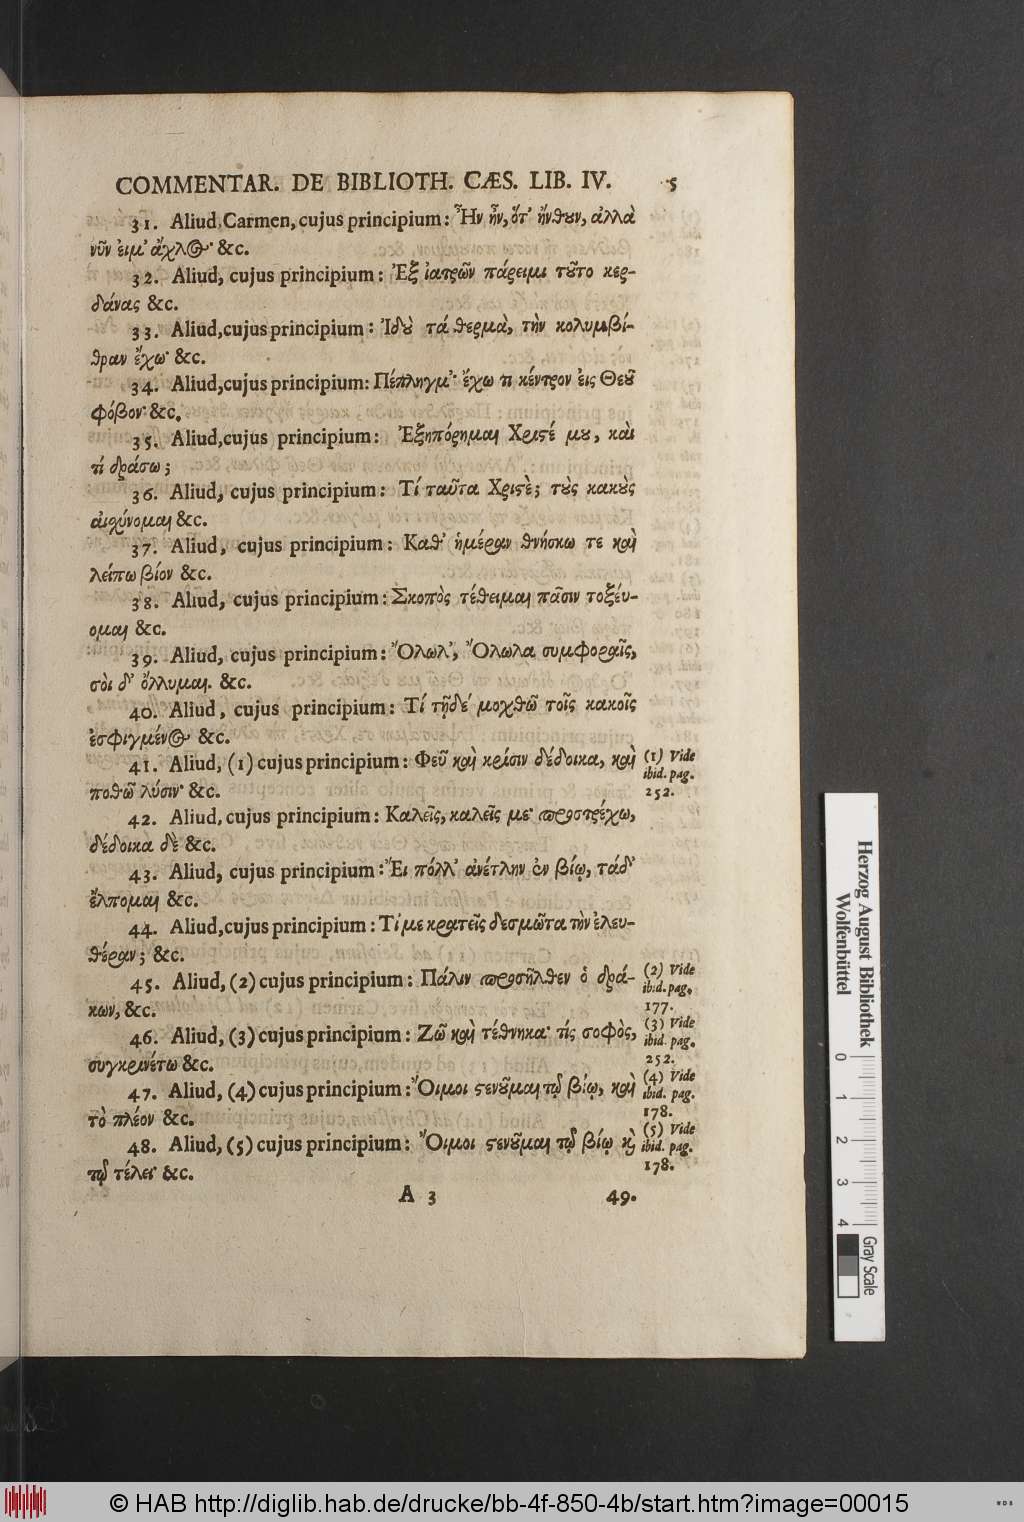 COMMENTAR. DE BIBLIOTH. CÆS. LIB. IV. 5
31. Aliud Carmen, cujus principium: Ἦν ἦν, ὅτ' ἤνθουν, ἀλλὰ
νῦν ἐιμ' ἄχλος· &c.
32. Aliud, cujus principium: Ἐξ ἰατρῶν πάρειμι τοῦτο κερ-
δάνας &c.
33. Aliud, cujus principium: Ἰδοὺ τά θερμὰ, τὴν κολυμβί-
θραν ἔχω· &c.
34. Aliud, cujus principium: Πέπληγμ'· ἔχω τι κέντρον ἐις Θεοῦ
φόβον· &c.
35. Aliud, cujus principium: Ἐξηπόρημαι Χριστέ μου, καὶ
τί δράσω;
36. Aliud, cujus principium: Τί ταῦτα Χριστὲ; τοὺς κακοὺς
αἰσχύνομαι &c.
37. Aliud, cujus principium: Καθ' ἡμέραν θνήσκω τε καὶ
λείπω βίον &c.
38. Aliud, cujus principium: Σκοπὸς τέθειμαι πᾶσιν τοξέυ-
ομαι &c.
39. Aliud, cujus principium: Ὄλωλ', Ὄλωλα συμφοραῖς,
σὸι δ' ὄλλυμαι. &c.
40. Aliud, cujus principium: Τί τῇδέ μοχθῶ τοῖς κακοῖς
ἐσφιγμένος &c.
41. Aliud, (1) cujus principium: Φεῦ καὶ κρίσιν δέδοικα, καὶ
ποθῶ λύσιν· &c.
(1) Vide
ibid. pag.
252.
42. Aliud, cujus principium: Καλεῖς, καλεῖς με· προστρέχω,
δέδοικα δὲ &c.
43. Aliud, cujus principium: Ἐι πόλλ' ἀνέτλην ἐν βίῳ, τάδ'
ἔλπομαι &c.
44. Aliud, cujus principium: Τί με κρατεῖς δεσμῶτα τὴν ἐλευ-
θέραν; &c.
45. Aliud, (2) cujus principium: Πάλιν προσῆλθεν ὁ δρά-
κων, &c.
(2) Vide
ibid. pag.
177.
46. Aliud, (3) cujus principium: Ζῶ καὶ τέθνηκα· τίς σοφὸς,
συγκρινέτω &c.
(3) Vide
ibid. pag.
252.
47. Aliud, (4) cujus principium: Ὄιμοι στενοῦμαι τῷ βίῳ, καὶ
τὸ πλέον &c.
(4) Vide
ibid. pag.
178.
48. Aliud, (5) cujus principium: Ὄιμοι στενοῦμαι τῷ βίῳ καὶ
τῷ τέλει· &c.
(5) Vide
ibid. pag.
178.
A 3 49.
Herzog August Bibliothek
Wolfenbüttel
0 1 2 3 4
Gray Scale
© HAB http://diglib.hab.de/drucke/bb-4f-850-4b/start.htm?image=00015